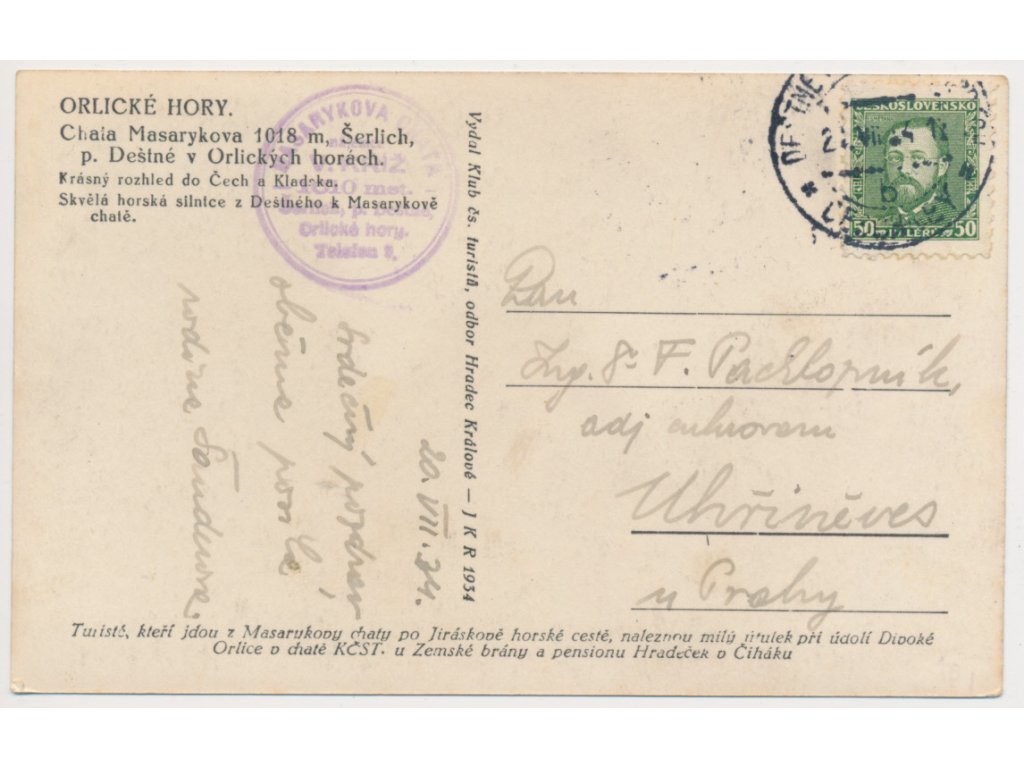 ORLICKÉ HORY.
Chata Masarykova 1018 m, Šerlich,
p. Deštné v Orlických horách.
Krásný rozhled do Čech a Kladska.
Skvělá horská silnice z Deštného k Masarykově
chatě.
MASARYKOVA CHATA
1010 met.
Šerlich, p. Deštné,
Orlické hory.
Telefon
Vydal Klub čs. turistů, odbor Hradec Králové — J K R 1934
ČESKOSLOVENSKO
50 HALÉŘŮ 50
20. VII. 34.
Srdečný pozdrav
rodina
Pan
Ing. Dr F. Pachlopník,
adj cukrovaru
Uhříněves
u Prahy
Turisté, kteří jdou z Masarykovy chaty po Jiráskově horské cestě, naleznou milý útulek při údolí Divoké
Orlice v chatě KČST. u Zemské brány a pensionu Hradeček v Čiháku